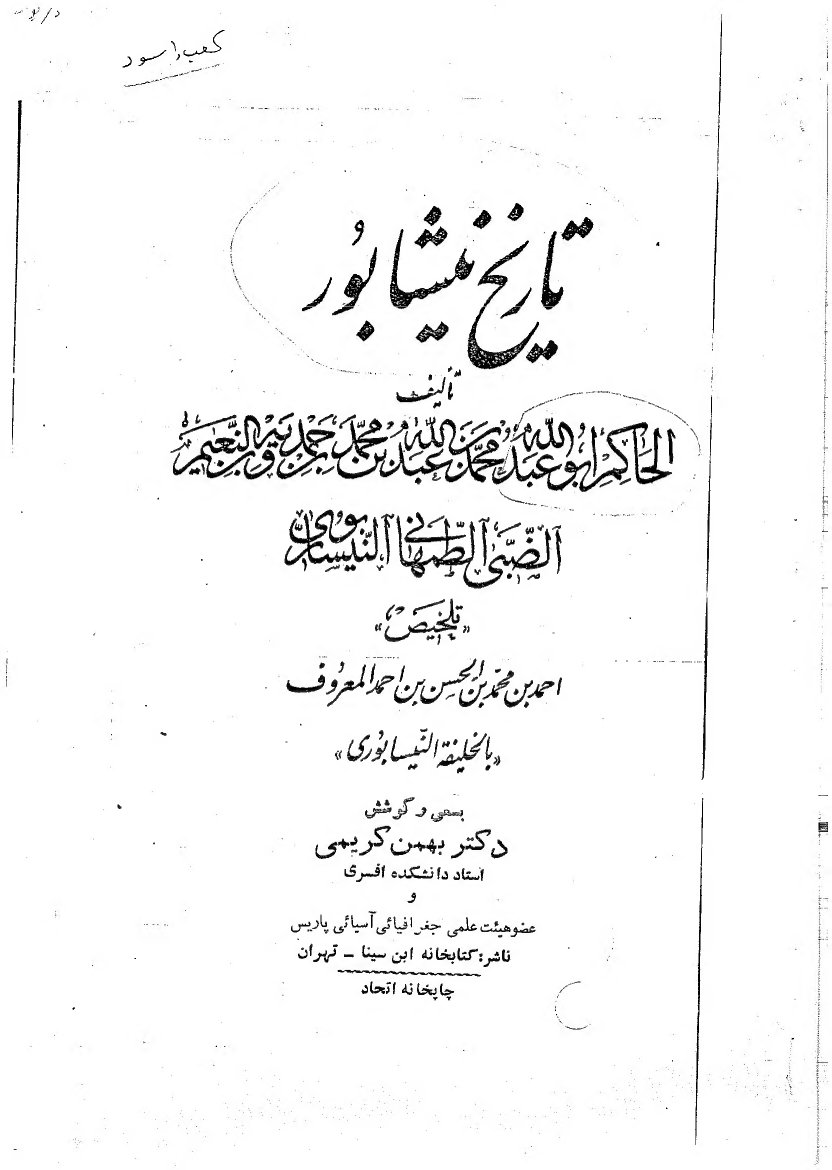 تاریخ نیشابور
تألیف
الحاکم ابو عبد الله محمد بن عبد الله بن محمد بن حمدویه بن نعیم
الضبی الطهمانی النیسابوری
«تلخیص»
احمد بن محمد بن الحسن بن احمد المعروف
«بالخلیفة النیسابوری»
بسعی و کوشش
دکتر بهمن کریمی
استاد دانشکده افسری
و
عضو هیئت علمی جغرافیائی آسیائی پاریس
ناشر: کتابخانه ابن سینا - تهران
چاپخانه اتحاد